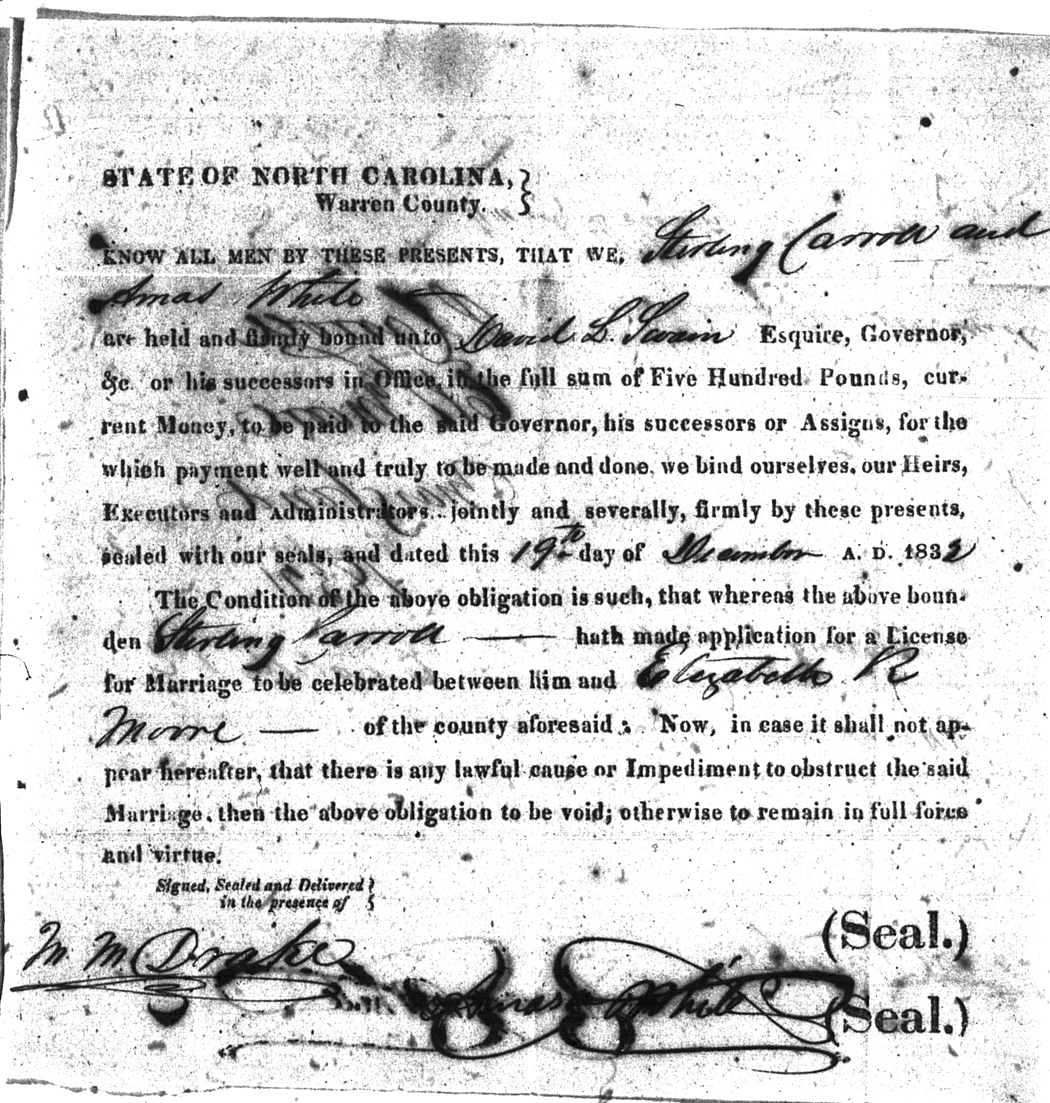 STATE OF NORTH CAROLINA,
Warren County.
KNOW ALL MEN BY THESE PRESENTS, THAT WE, Sterling Carroll and
Amas White
are held and firmly bound unto David L. Swain Esquire, Governor,
&c. or his successors in Office, in the full sum of Five Hundred Pounds, cur-
rent Money, to be paid to the said Governor, his successors or Assigns, for the
which payment well and truly to be made and done, we bind ourselves, our Heirs,
Executors and Administrators, jointly and severally, firmly by these presents,
sealed with our seals, and dated this 19th day of December A. D. 1832
The Condition of the above obligation is such, that whereas the above boun-
den Sterling Carroll hath made application for a License
for Marriage to be celebrated between him and Elizabeth R
Moore of the county aforesaid: Now, in case it shall not ap-
pear hereafter, that there is any lawful cause or Impediment to obstruct the said
Marriage, then the above obligation to be void; otherwise to remain in full force
and virtue.
Signed, Sealed and Delivered
in the presence of
(Seal.)
M. M. Drake
Amas White (Seal.)